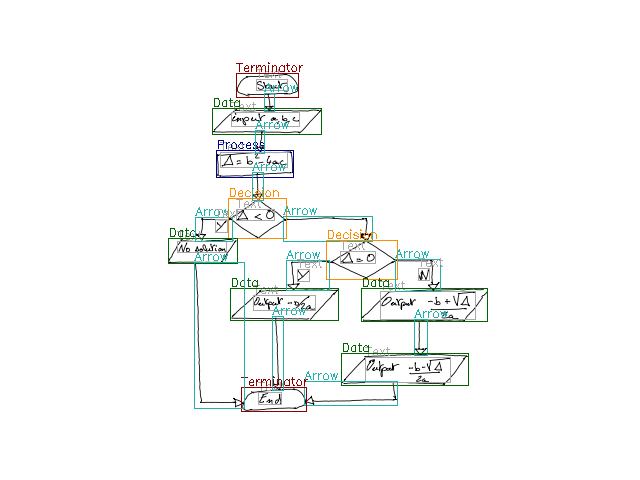 Terminator
Text
Start
Arrow
Data
Text
input a b c
Arrow
Process
Δ = b² - 4ac
Arrow
Decision
Text
Δ < 0
Arrow
Text
Y
Arrow
Data
No solution
Arrow
Decision
Text
Δ = 0
Arrow
Text
Y
Arrow
Text
N
Data
Text
Output
Arrow
Data
Text
Output -b + √Δ
2a
Arrow
Data
Text
Output -b - √Δ
2a
Arrow
Terminator
Text
End